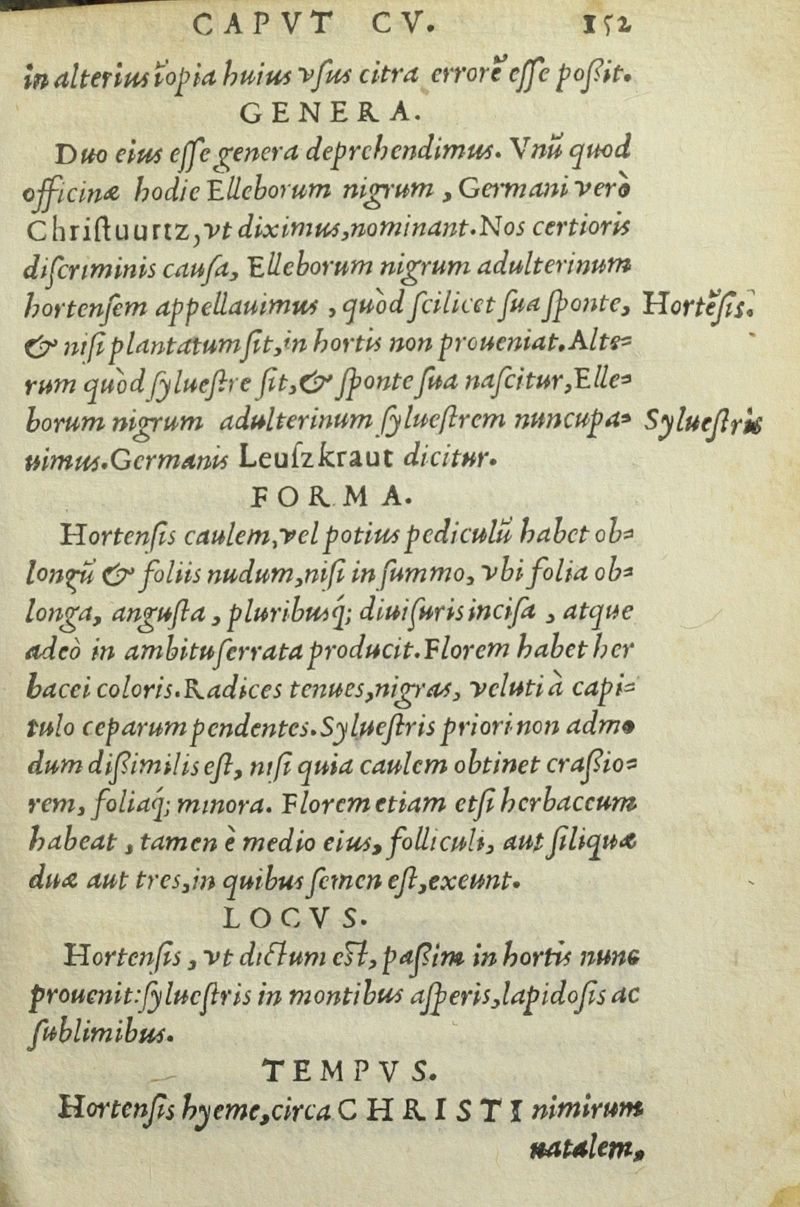 CAPVT CV. 152
in alterius iopia huius vsus citra errorẽ esse poßit.
GENERA.
Duo eius esse genera deprehendimus. Vnũ quod
officinæ hodie Elleborum nigrum, Germani verò
Christuurtz, vt diximus, nominant. Nos certioris
discriminis causa, Elleborum nigrum adulterinum
hortensem appellauimus, quòd scilicet sua sponte, Hortẽsis.
& nisi plantatum sit, in hortis non proueniat. Alte=
rum quòd syluestre sit, & sponte sua nascitur, Elle=
borum nigrum adulterinum syluestrem nuncupa= Syluestris
uimus. Germanis Leuszkraut dicitur.
FORMA.
Hortensis caulem, vel potius pediculũ habet ob=
longũ & foliis nudum, nisi in summo, vbi folia ob=
longa, angusta, pluribusq́; diuisuris incisa, atque
adeò in ambitu serrata producit. Florem habet her
bacei coloris. Radices tenues, nigras, veluti à capi=
tulo ceparum pendentes. Syluestris priori non admo
dum dißimilis est, nisi quia caulem obtinet craßio=
rem, foliaq́; minora. Florem etiam etsi herbaceum
habeat, tamen è medio eius, folliculi, aut siliquæ
duæ aut tres, in quibus semen est, exeunt.
LOCVS.
Hortensis, vt dictum est, paßim in hortis nunc
prouenit: syluestris in montibus asperis, lapidosis ac
sublimibus.
TEMPVS.
Hortensis hyeme, circa CHRISTI nimirum
natalem,